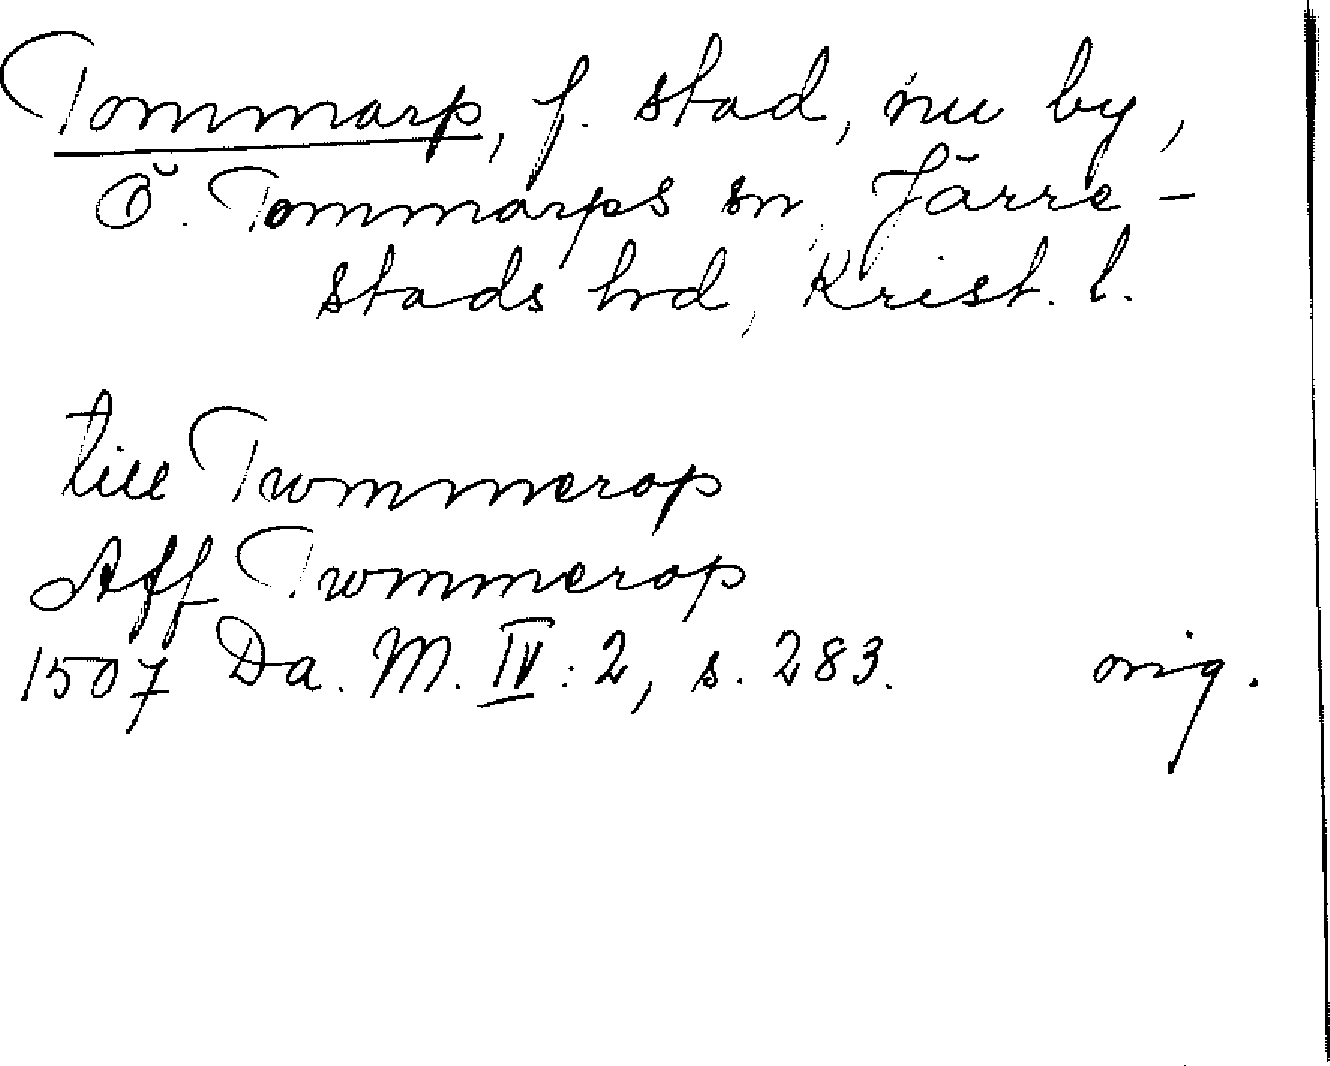 Tommarp, f. stad, nu by,
Ö. Tommarps sn, Järre-
stads hd, Krist. l.
till Twmmerop
Aff Twmmerop
1507 Da. M. IV: 2, s. 283. orig.